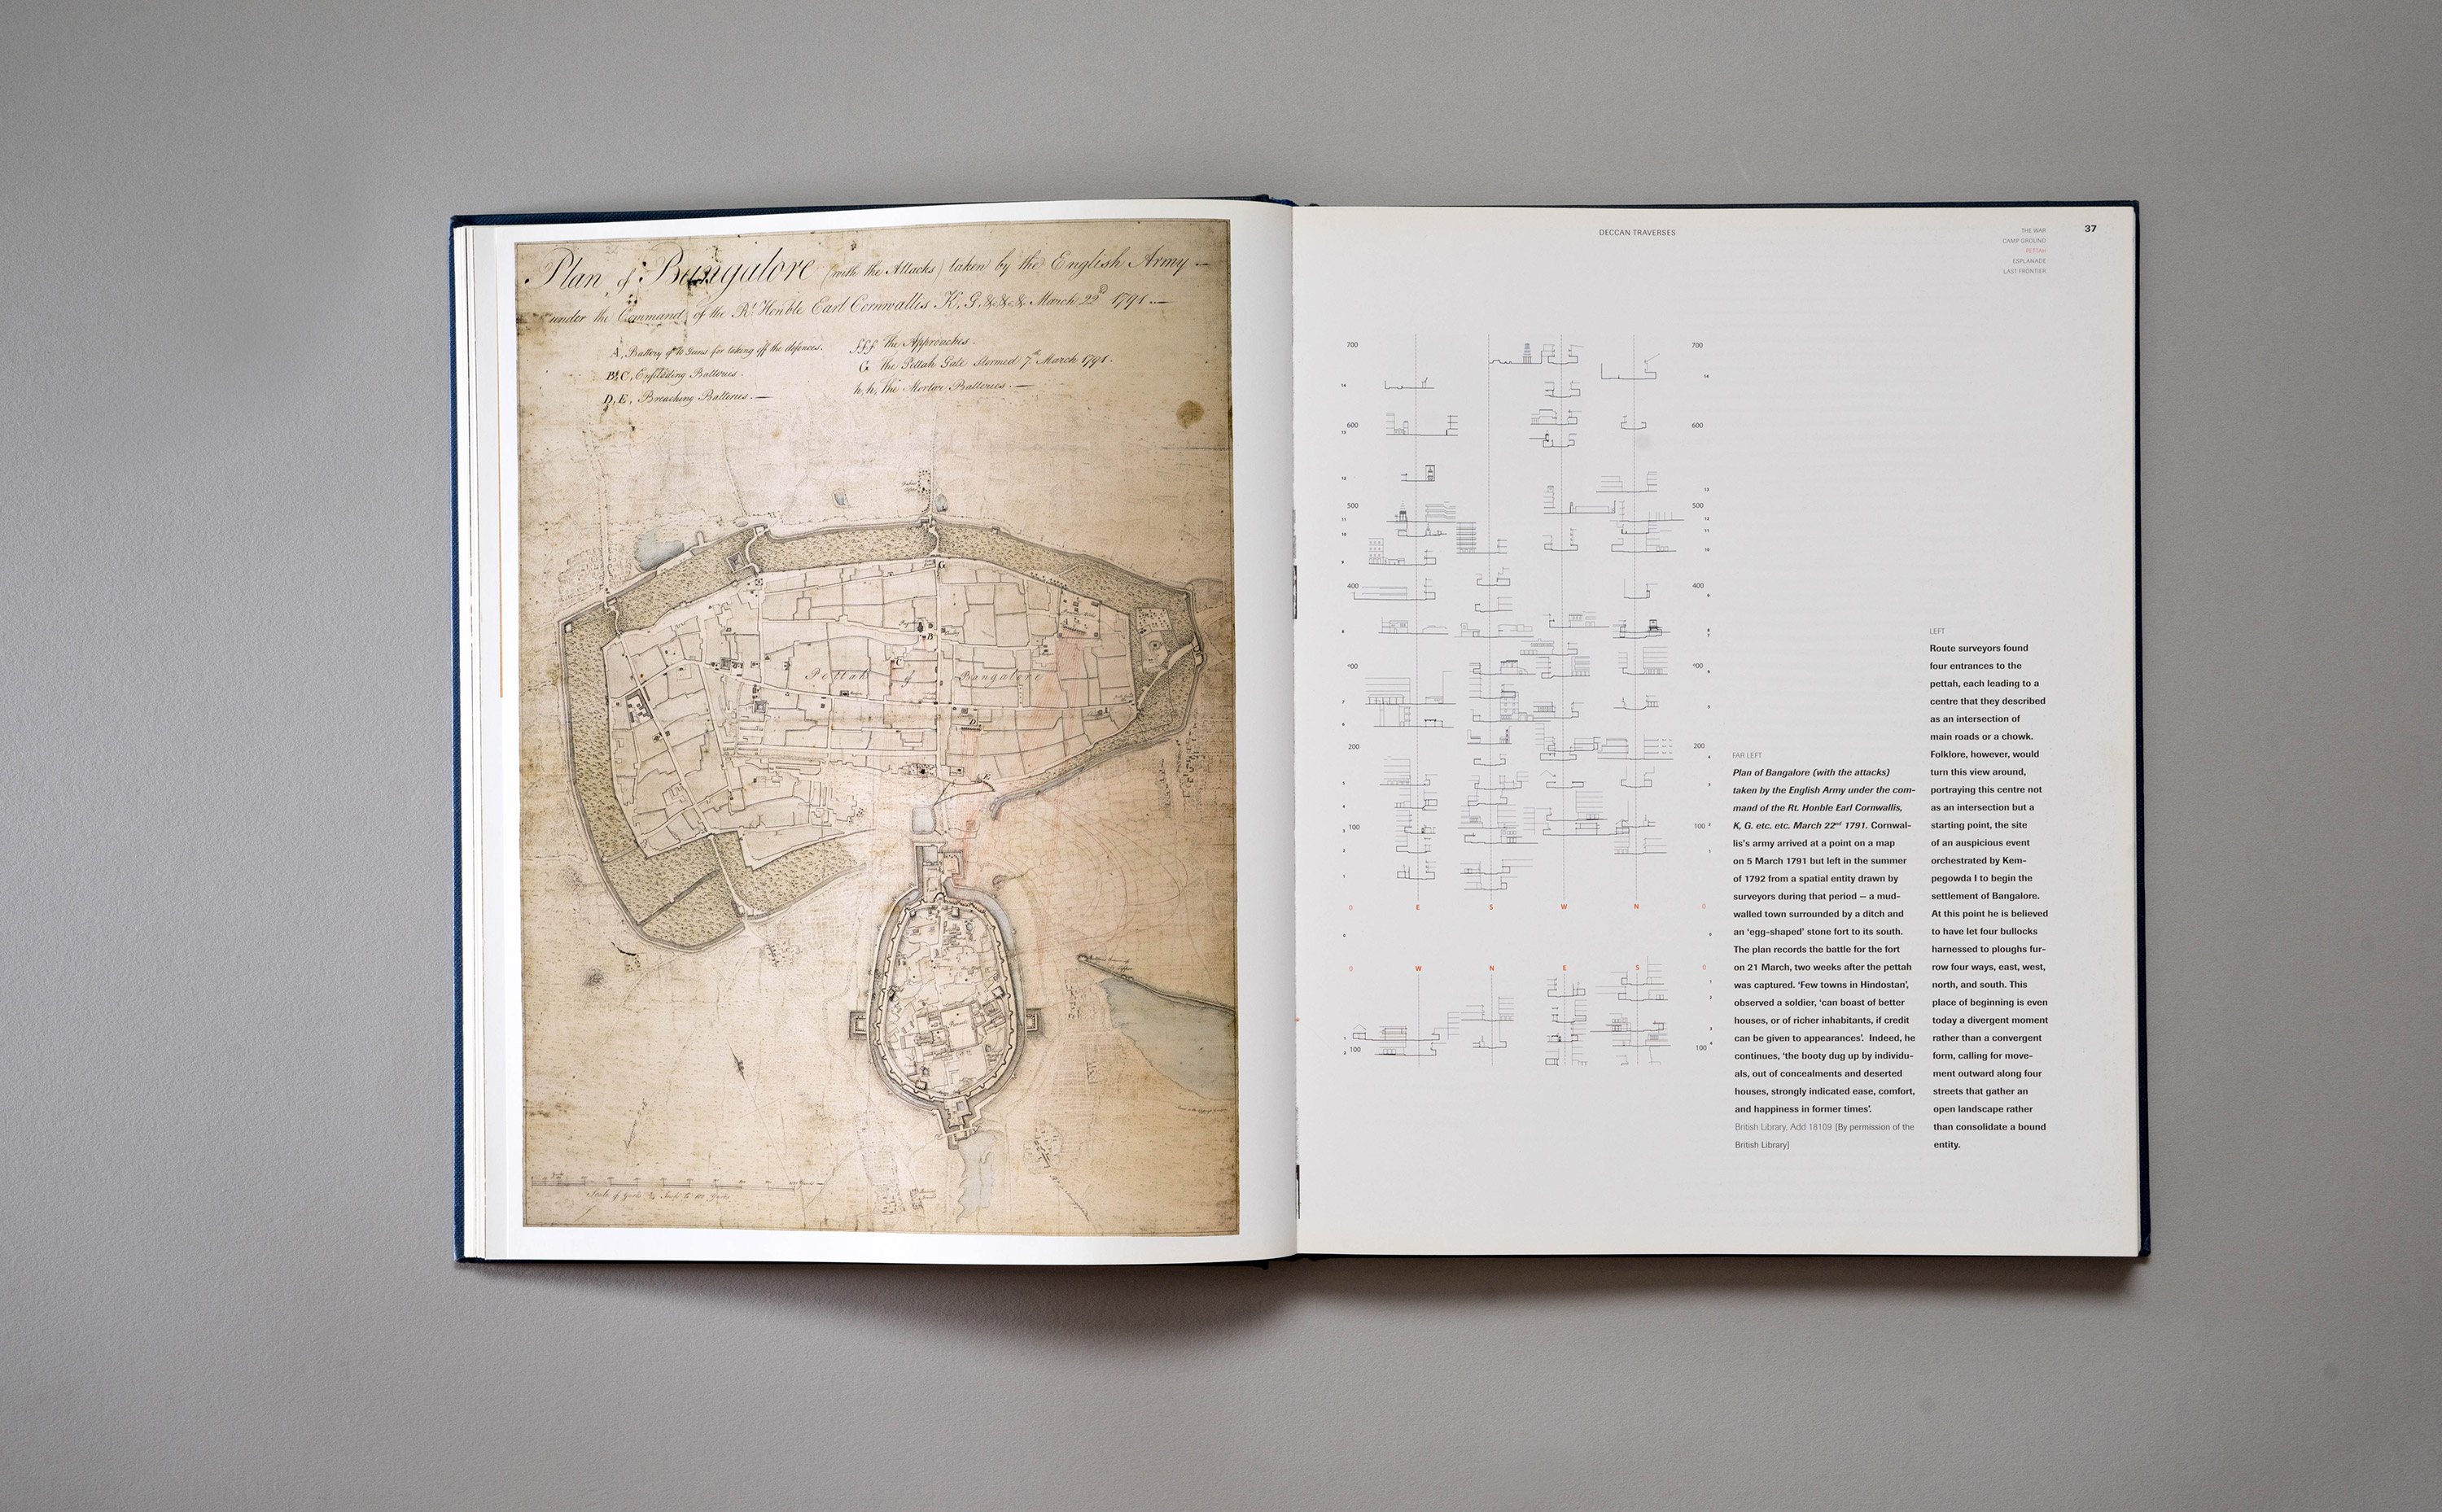 Plan of Bangalore (with the Attacks) taken by the English Army
under the Command of the Rt. Honble Earl Cornwallis K, G, &c &c &c March 22d 1791.
A, Battery of 10 Guns for taking off the defences.
B, C, Enfilading Batteries.
D, E, Breaching Batteries.
fff The Approaches.
G The Pettah Gate stormed 7th March 1791.
h, h, The Mortar Batteries.
G
B
C
Pettah of Bangalore
D
E
Scale of Yards
DECCAN TRAVERSES
THE WAR
CAMP GROUND
PETTAH
ESPLANADE
LAST FRONTIER
37
700 700
600 600
500 500
400 400
300
200 200
100 100
0 E S W N 0
0 W N E S 0
100 100
FAR LEFT
Plan of Bangalore (with the attacks)
taken by the English Army under the com-
mand of the Rt. Honble Earl Cornwallis,
K, G. etc. etc. March 22nd 1791. Cornwal-
lis's army arrived at a point on a map
on 5 March 1791 but left in the summer
of 1792 from a spatial entity drawn by
surveyors during that period — a mud-
walled town surrounded by a ditch and
an ‘egg-shaped’ stone fort to its south.
The plan records the battle for the fort
on 21 March, two weeks after the pettah
was captured. ‘Few towns in Hindostan’,
observed a soldier, ‘can boast of better
houses, or of richer inhabitants, if credit
can be given to appearances’. Indeed, he
continues, ‘the booty dug up by individu-
als, out of concealments and deserted
houses, strongly indicated ease, comfort,
and happiness in former times’.
British Library, Add 18109 [By permission of the
British Library]
LEFT
Route surveyors found
four entrances to the
pettah, each leading to a
centre that they described
as an intersection of
main roads or a chowk.
Folklore, however, would
turn this view around,
portraying this centre not
as an intersection but a
starting point, the site
of an auspicious event
orchestrated by Kem-
pegowda I to begin the
settlement of Bangalore.
At this point he is believed
to have let four bullocks
harnessed to ploughs fur-
row four ways, east, west,
north, and south. This
place of beginning is even
today a divergent moment
rather than a convergent
form, calling for move-
ment outward along four
streets that gather an
open landscape rather
than consolidate a bound
entity.